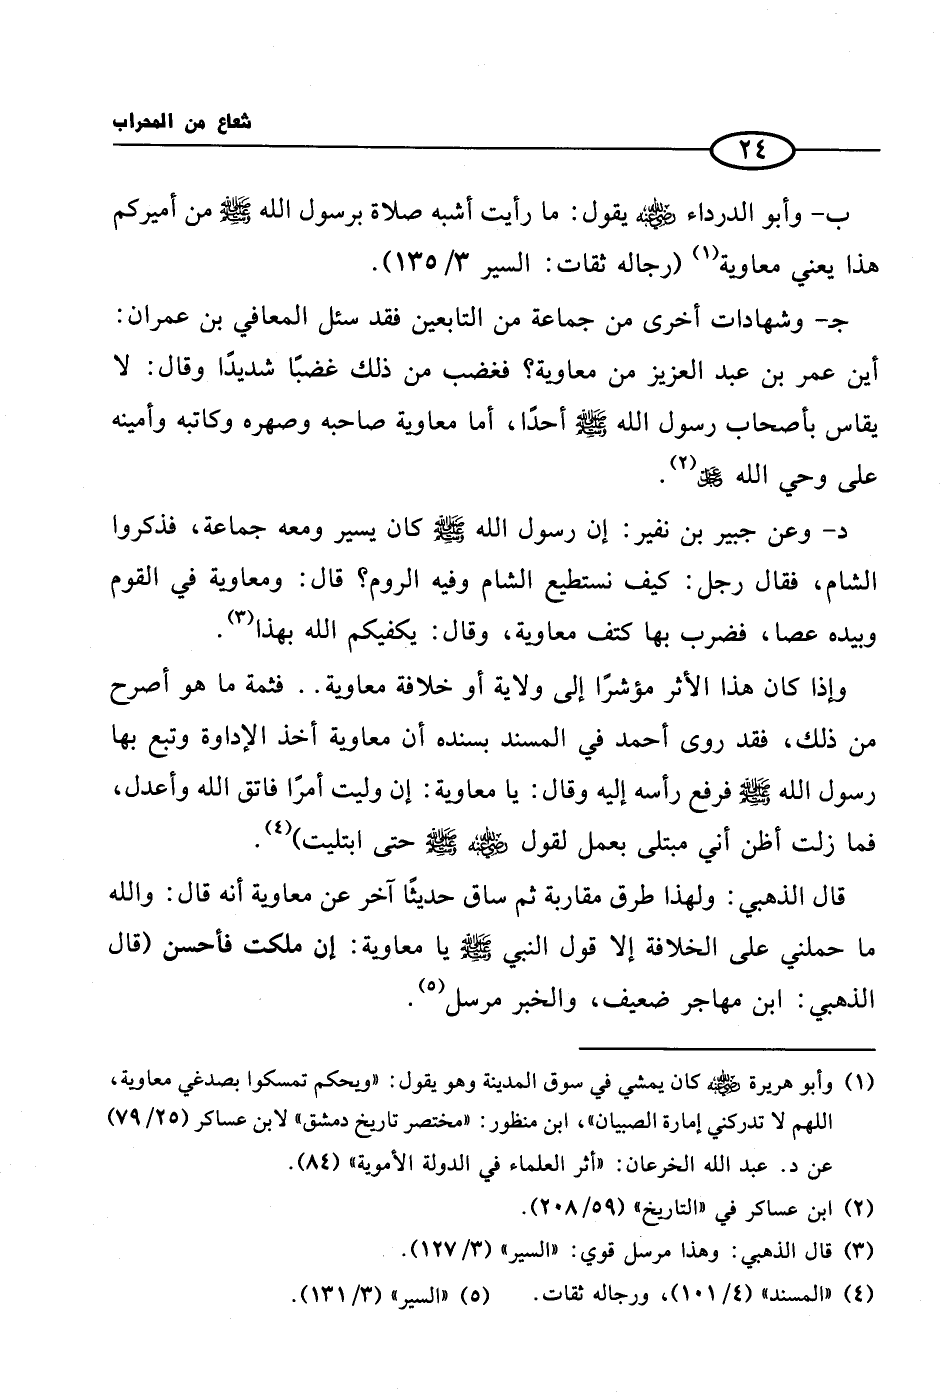 شعاع من المحراب
٢٤
ب- وأبو الدرداء رضي الله عنه يقول: ما رأيت أشبه صلاة برسول الله ﷺ من أميركم
هذا يعني معاوية(١) (رجاله ثقات: السير ٣/ ١٣٥).
جـ- وشهادات أخرى من جماعة من التابعين فقد سئل المعافي بن عمران:
أين عمر بن عبد العزيز من معاوية؟ فغضب من ذلك غضبًا شديدًا وقال: لا
يقاس بأصحاب رسول الله ﷺ أحدًا، أما معاوية صاحبه وصهره وكاتبه وأمينه
على وحي الله ﷻ(٢).
د- وعن جبير بن نفير: إن رسول الله ﷺ كان يسير ومعه جماعة، فذكروا
الشام، فقال رجل: كيف نستطيع الشام وفيه الروم؟ قال: ومعاوية في القوم
وبيده عصا، فضرب بها كتف معاوية، وقال: يكفيكم الله بهذا(٣).
وإذا كان هذا الأثر مؤشرًا إلى ولاية أو خلافة معاوية.. فثمة ما هو أصرح
من ذلك، فقد روى أحمد في المسند بسنده أن معاوية أخذ الإداوة وتبع بها
رسول الله ﷺ فرفع رأسه إليه وقال: يا معاوية: إن وليت أمرًا فاتق الله وأعدل،
فما زلت أظن أني مبتلى بعمل لقول رضي الله عنه ﷺ حتى ابتليت)(٤).
قال الذهبي: ولهذا طرق مقاربة ثم ساق حديثًا آخر عن معاوية أنه قال: والله
ما حملني على الخلافة إلا قول النبي ﷺ يا معاوية: إن ملكت فأحسن (قال
الذهبي: ابن مهاجر ضعيف، والخبر مرسل(٥).
(١) وأبو هريرة رضي الله عنه كان يمشي في سوق المدينة وهو يقول: «ويحكم تمسكوا بصدغي معاوية،
اللهم لا تدركني إمارة الصبيان»، ابن منظور: «مختصر تاريخ دمشق» لابن عساكر (٢٥/ ٧٩)
عن د. عبد الله الخرعان: «أثر العلماء في الدولة الأموية» (٨٤).
(٢) ابن عساكر في «التاريخ» (٥٩/ ٢٠٨).
(٣) قال الذهبي: وهذا مرسل قوي: «السير» (٣/ ١٢٧).
(٤) «المسند» (٤/ ١٠١)، ورجاله ثقات. (٥) «السير» (٣/ ١٣١).